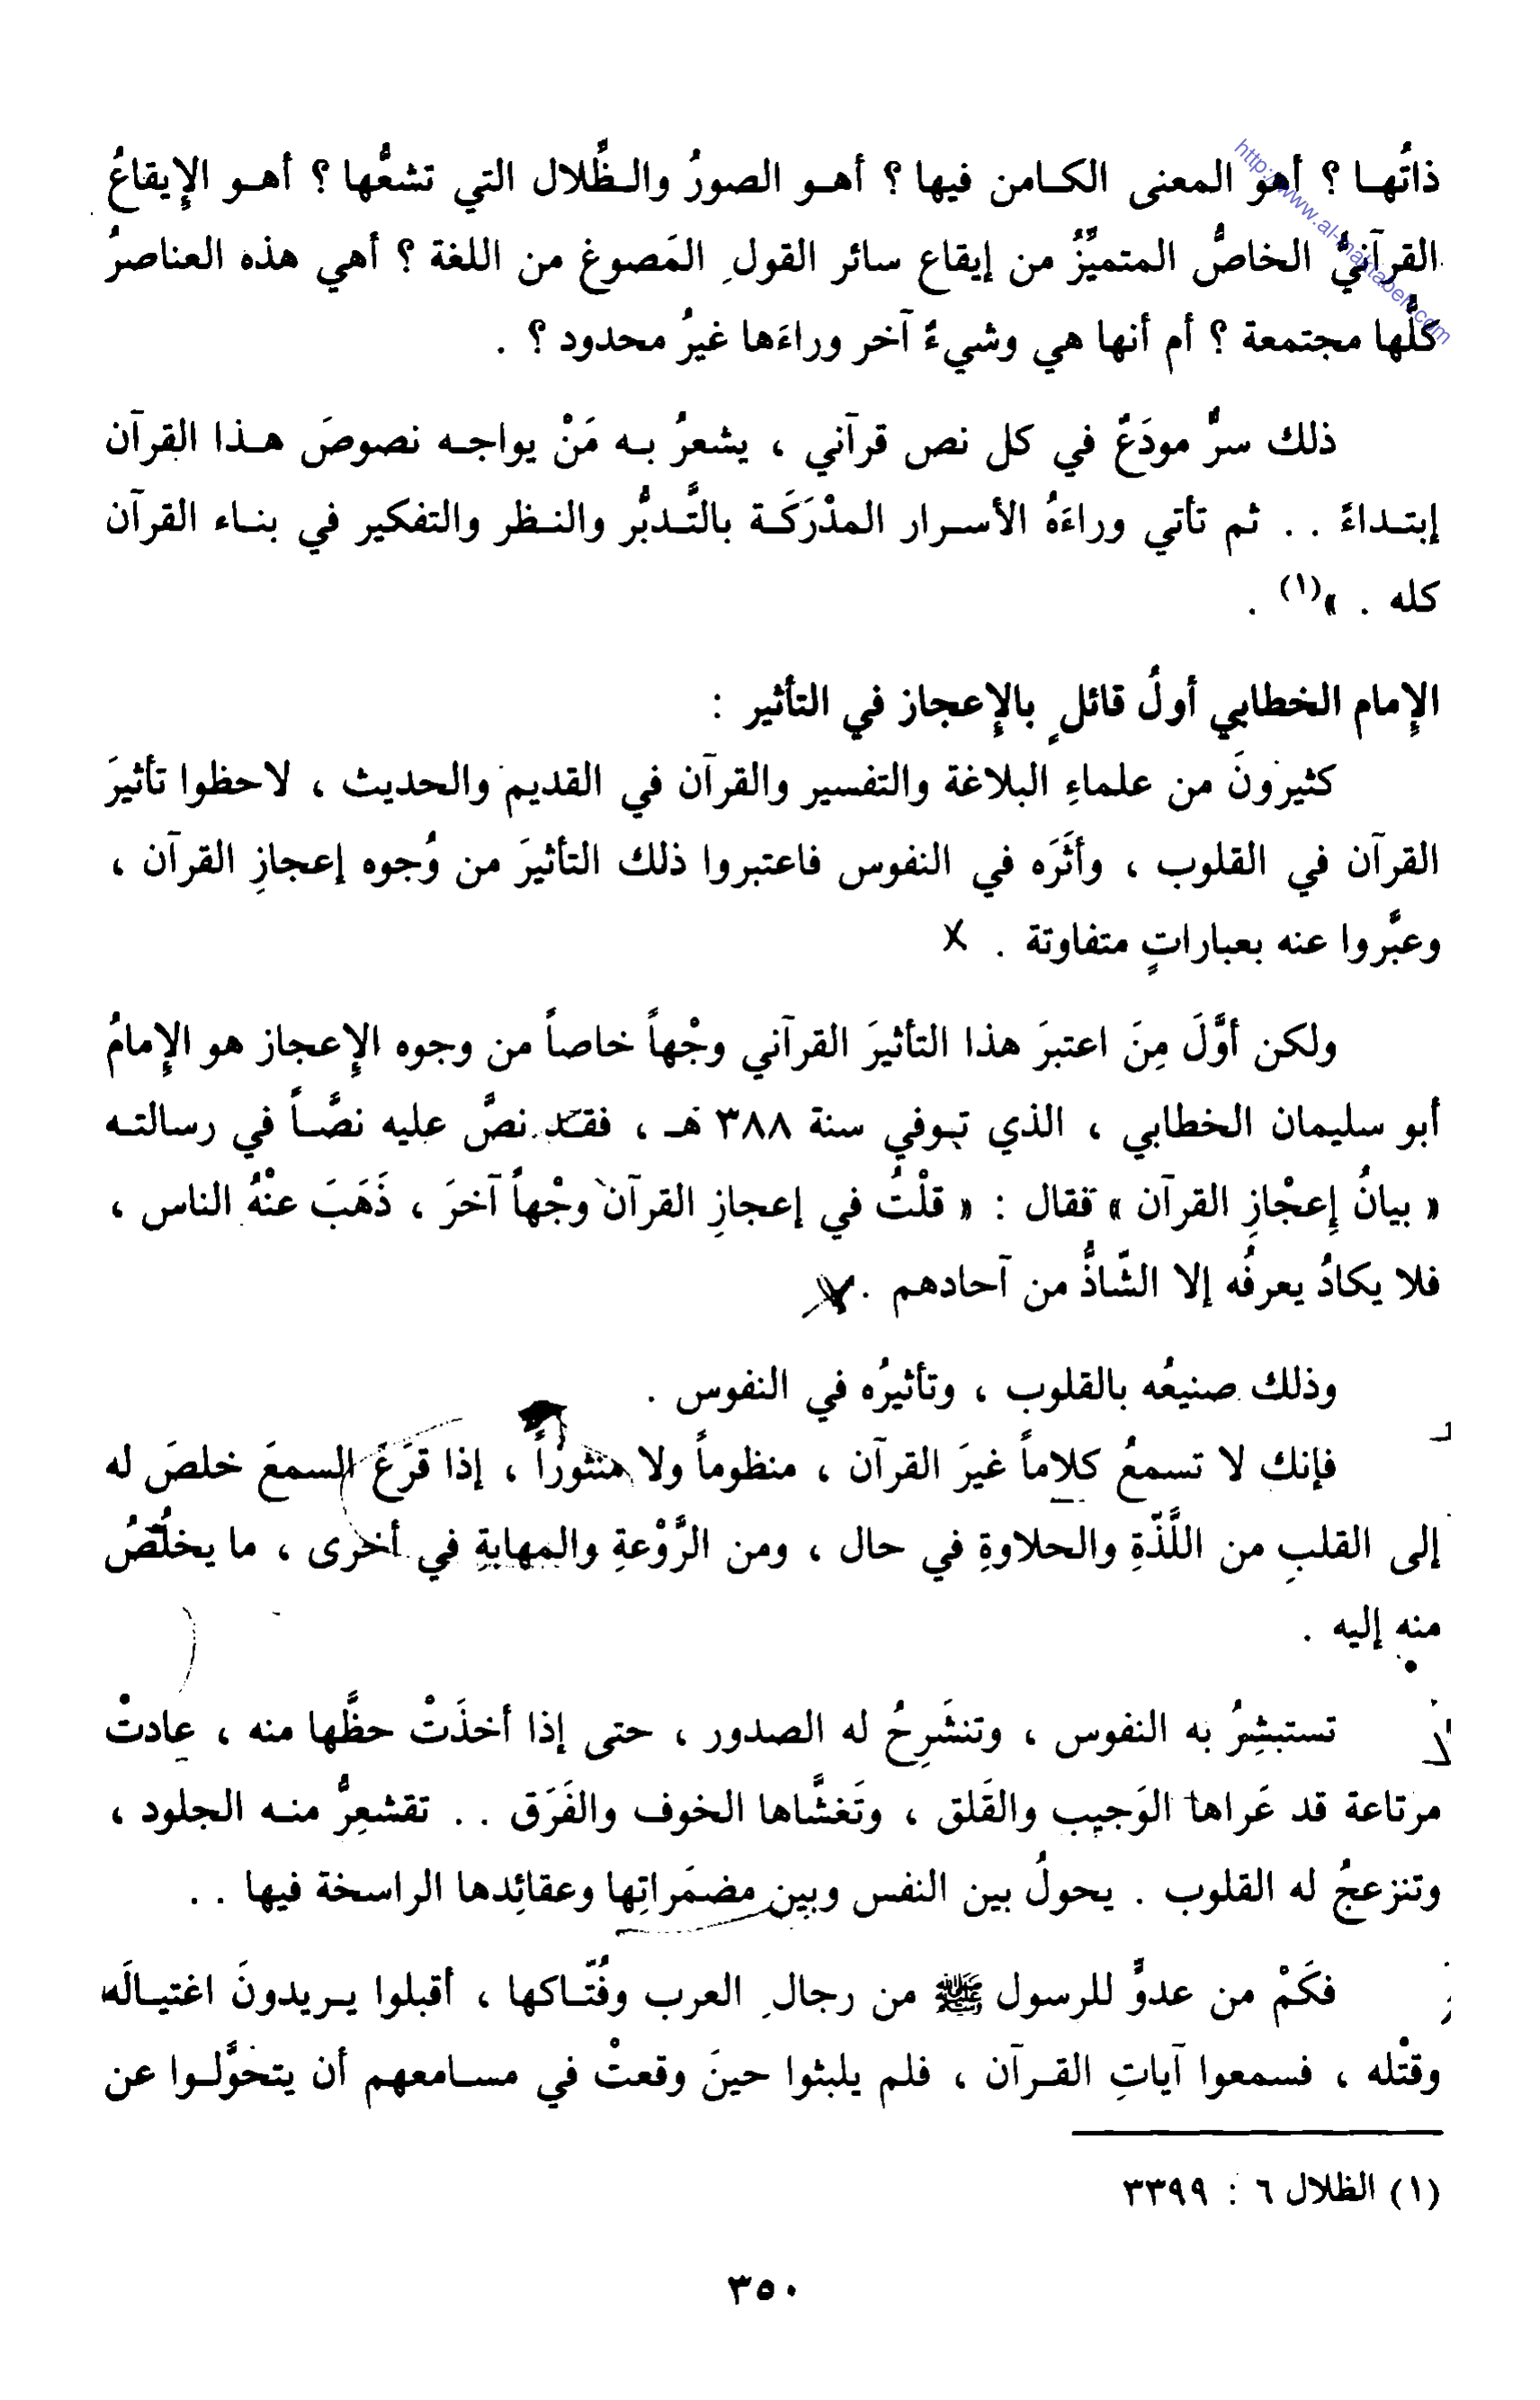 ذاتُهـا ؟ أهو المعنى الكـامن فيها ؟ أهـو الصورُ والـظِّلال التي تشعُّها ؟ أهـو الإِيقاعُ
القرآنيُّ الخاصُّ المتميِّزُ من إيقاع سائر القولِ المَصوغ من اللغة ؟ أهي هذه العناصرُ
كلُّها مجتمعة ؟ أم أنها هي وشيءٌ آخر وراءَها غيرُ محدود ؟ .
ذلك سرٌّ مودَعٌ في كل نص قرآني ، يشعرُ بـه مَنْ يواجـه نصوصَ هـذا القرآن
إبتـداءً . . ثم تأتي وراءَهُ الأسـرار المدْرَكَـة بالتَّـدبُّر والنـظر والتفكير في بنـاء القرآن
كله . »(١) .
الإِمام الخطابي أولُ قائلٍ بالإِعجاز في التأثير :
كثيرونَ من علماءِ البلاغة والتفسير والقرآن في القديم والحديث ، لاحظوا تأثيرَ
القرآن في القلوب ، وأثَرَه في النفوس فاعتبروا ذلك التأثيرَ من وُجوه إعجازِ القرآن ،
وعبَّروا عنه بعباراتٍ متفاوتة .
ولكن أوَّلَ مِنَ اعتبرَ هذا التأثيرَ القرآني وجْهاً خاصاً من وجوه الإِعجاز هو الإِمامُ
أبو سليمان الخطابي ، الذي تـوفي سنة ٣٨٨ هـ ، فقـد نصَّ عليه نصَّـاً في رسالتـه
« بيانُ إعْجازِ القرآن » فقال : « قلْتُ في إعجازِ القرآن وجْهاً آخرَ ، ذَهَبَ عنْهُ الناس ،
فلا يكادُ يعرفُه إلا الشّاذُّ من آحادهم .
وذلك صنيعُه بالقلوب ، وتأثيرُه في النفوس .
فإنك لا تسمعُ كلاماً غيرَ القرآن ، منظوماً ولا منثوراً ، إذا قرَعَ السمعَ خلصَ له
إلى القلبِ من اللَّذّةِ والحلاوةِ في حال ، ومن الرَّوْعةِ والمهابةِ في أخرى ، ما يخلُصُ
منه إليه .
تستبشِرُ به النفوس ، وتنشَرِحُ له الصدور ، حتى إذا أخذَتْ حظَّها منه ، عادتْ
مرتاعة قد عَراها الوَجيب والقَلق ، وتَغشَّاها الخوف والفَرَق . . تقشعِرُّ منـه الجلود ،
وتنزعجُ له القلوب . يحولُ بين النفس وبين مضمَراتِها وعقائِدها الراسخة فيها . .
فكَمْ من عدوٍّ للرسول ﷺ من رجالِ العرب وفُتّـاكها ، أقبلوا يـريدونَ اغتيـالَه
وقتْله ، فسمعوا آياتِ القـرآن ، فلم يلبثوا حينَ وقعتْ في مسـامعهم أن يتحوَّلـوا عن
(١) الظلال ٦ : ٣٣٩٩
٣٥٠